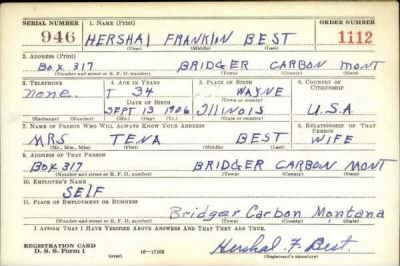 SERIAL NUMBER 1. NAME (Print) ORDER NUMBER
946 HERSHAL FRANKLIN BEST 1112
(First) (Middle) (Last)
2. ADDRESS (Print)
Box 317 BRIDGER CARBON MONT
(Number and street or R. F. D. number) (Town) (County) (State)
3. TELEPHONE 4. AGE IN YEARS 5. PLACE OF BIRTH 6. COUNTRY OF CITIZENSHIP
none 34 WAYNE
DATE OF BIRTH (Town or county)
SEPT 13 1906 ILLINOIS U.S.A
(Exchange) (Number) (Mo.) (Day) (Yr.) (State or country)
7. NAME OF PERSON WHO WILL ALWAYS KNOW YOUR ADDRESS 8. RELATIONSHIP OF THAT PERSON
MRS TENA BEST WIFE
(Mr., Mrs., Miss) (First) (Middle) (Last)
9. ADDRESS OF THAT PERSON
Box 317 BRIDGER CARBON MONT
(Number and street or R. F. D. number) (Town) (County) (State)
10. EMPLOYER'S NAME
SELF
11. PLACE OF EMPLOYMENT OR BUSINESS
Bridger Carbon Montana
(Number and street or R. F. D. number) (Town) (County) (State)
I AFFIRM THAT I HAVE VERIFIED ABOVE ANSWERS AND THAT THEY ARE TRUE.
REGISTRATION CARD
D. S. S. Form 1 (over) 16—17105 Hershal F. Best.